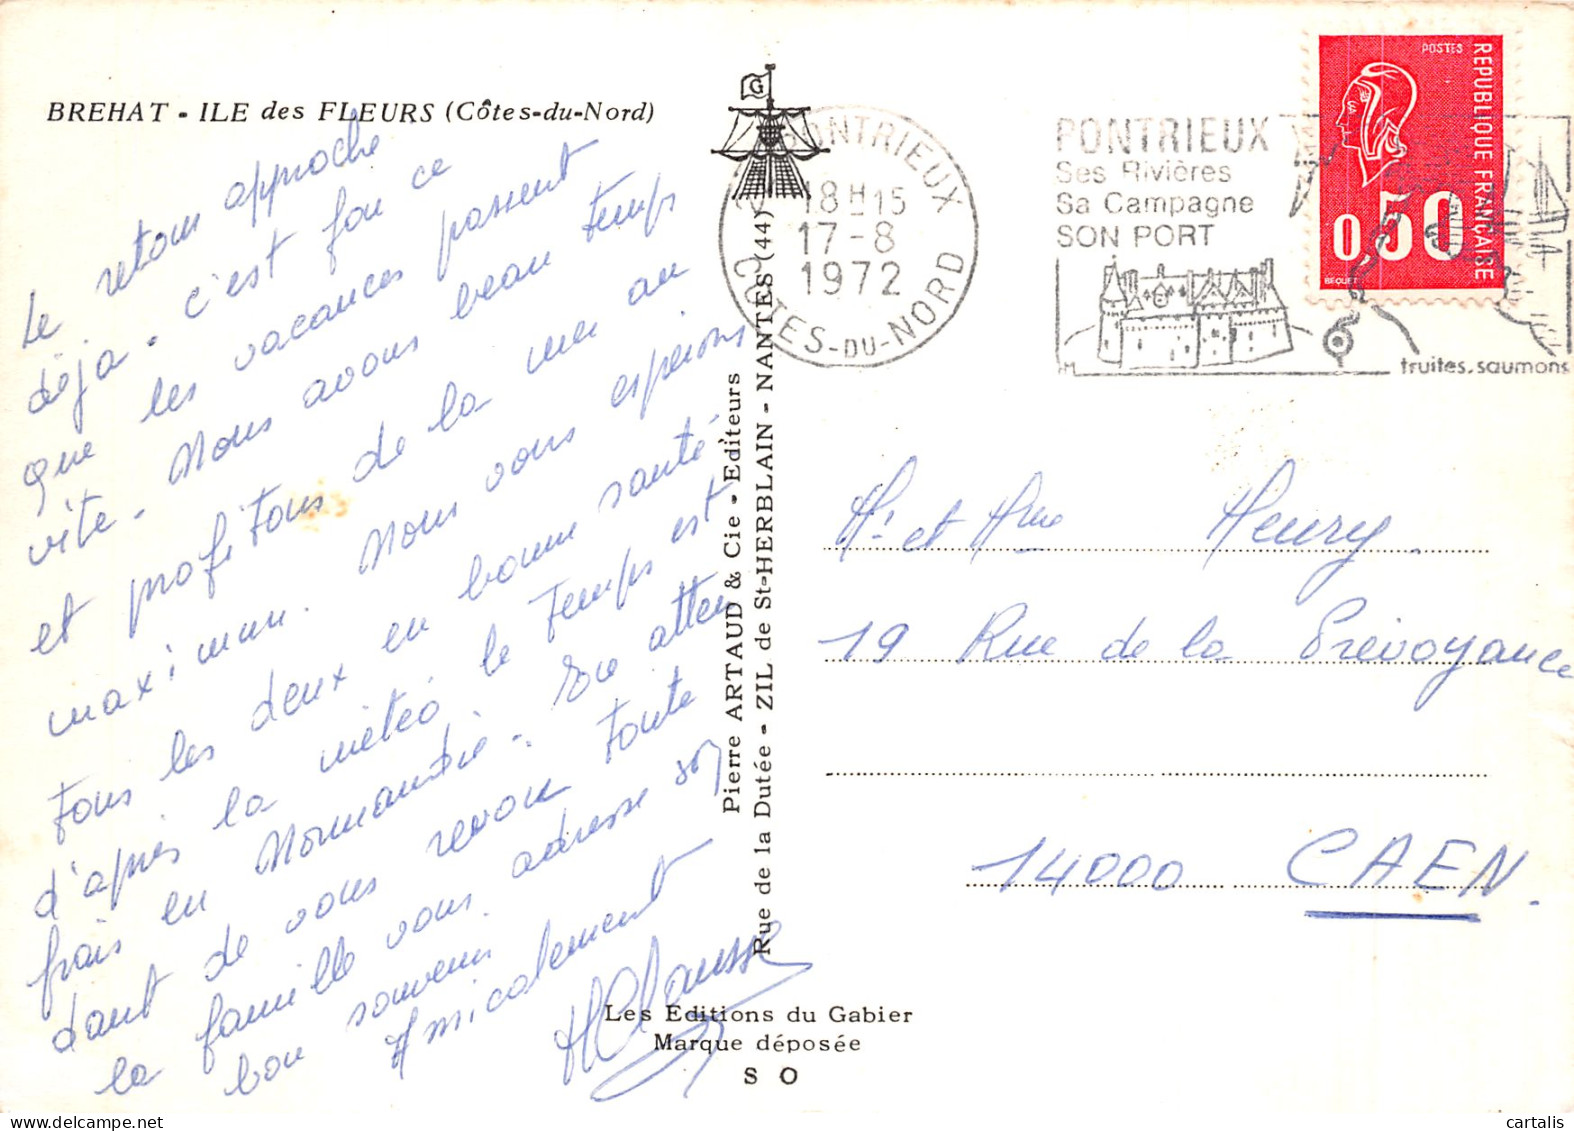 BREHAT - ILE des FLEURS (Côtes-du-Nord)
Le retour approche
déjà. c'est fou ce
que les vacances passent
vite. Nous avons beau temps
et profitons de la mer au
maximum. Nous vous espérons
tous les deux en bonne santé
d'après la météo le temps est
frais en Normandie. En atten
dant de vous revoir toute
la famille vous adresse son
bon souvenir.
Amicalement
Pierre ARTAUD & Cie - Editeurs
Rue de la Dutée - ZIL de St-HERBLAIN - NANTES (44)
G
PONTRIEUX
18H15
17-8
1972
CÔTES-DU-NORD
PONTRIEUX
Ses Rivières
Sa Campagne
SON PORT
truites, saumons
POSTES
REPUBLIQUE FRANÇAISE
0,50
BEQUET
Mr et Mme Henry
19 Rue de la Prévoyance
14000 CAEN.
Les Editions du Gabier
Marque déposée
S O
delcampe.net
cartalis